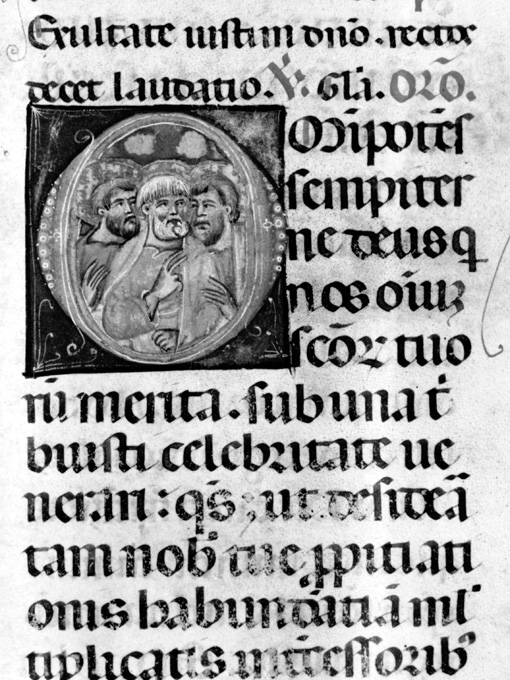 Exultate iusti in dn̄o. rectos
decet laudatio. V̇. Glā. Orō.
Om̄ipotēs
sempiter
ne deus q̄
nos oīuꝫ
scōꝝ tuo
rū merita. sub una t̓
buisti celebritate ue
nerari: q̄s; ut desideā
tam nob̓ tue ꝓpitiati
onis habundātiā ml̓
tiplicatis int̄cessorib⁹